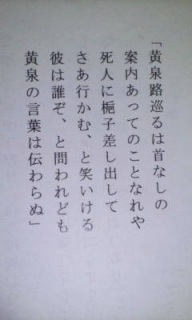 「黄泉路巡るは首なしの
案内あってのことなれや
死人に梔子差し出して
さあ行かむ、と笑いける
彼は誰ぞ、と問われども
黄泉の言葉は伝わらぬ」